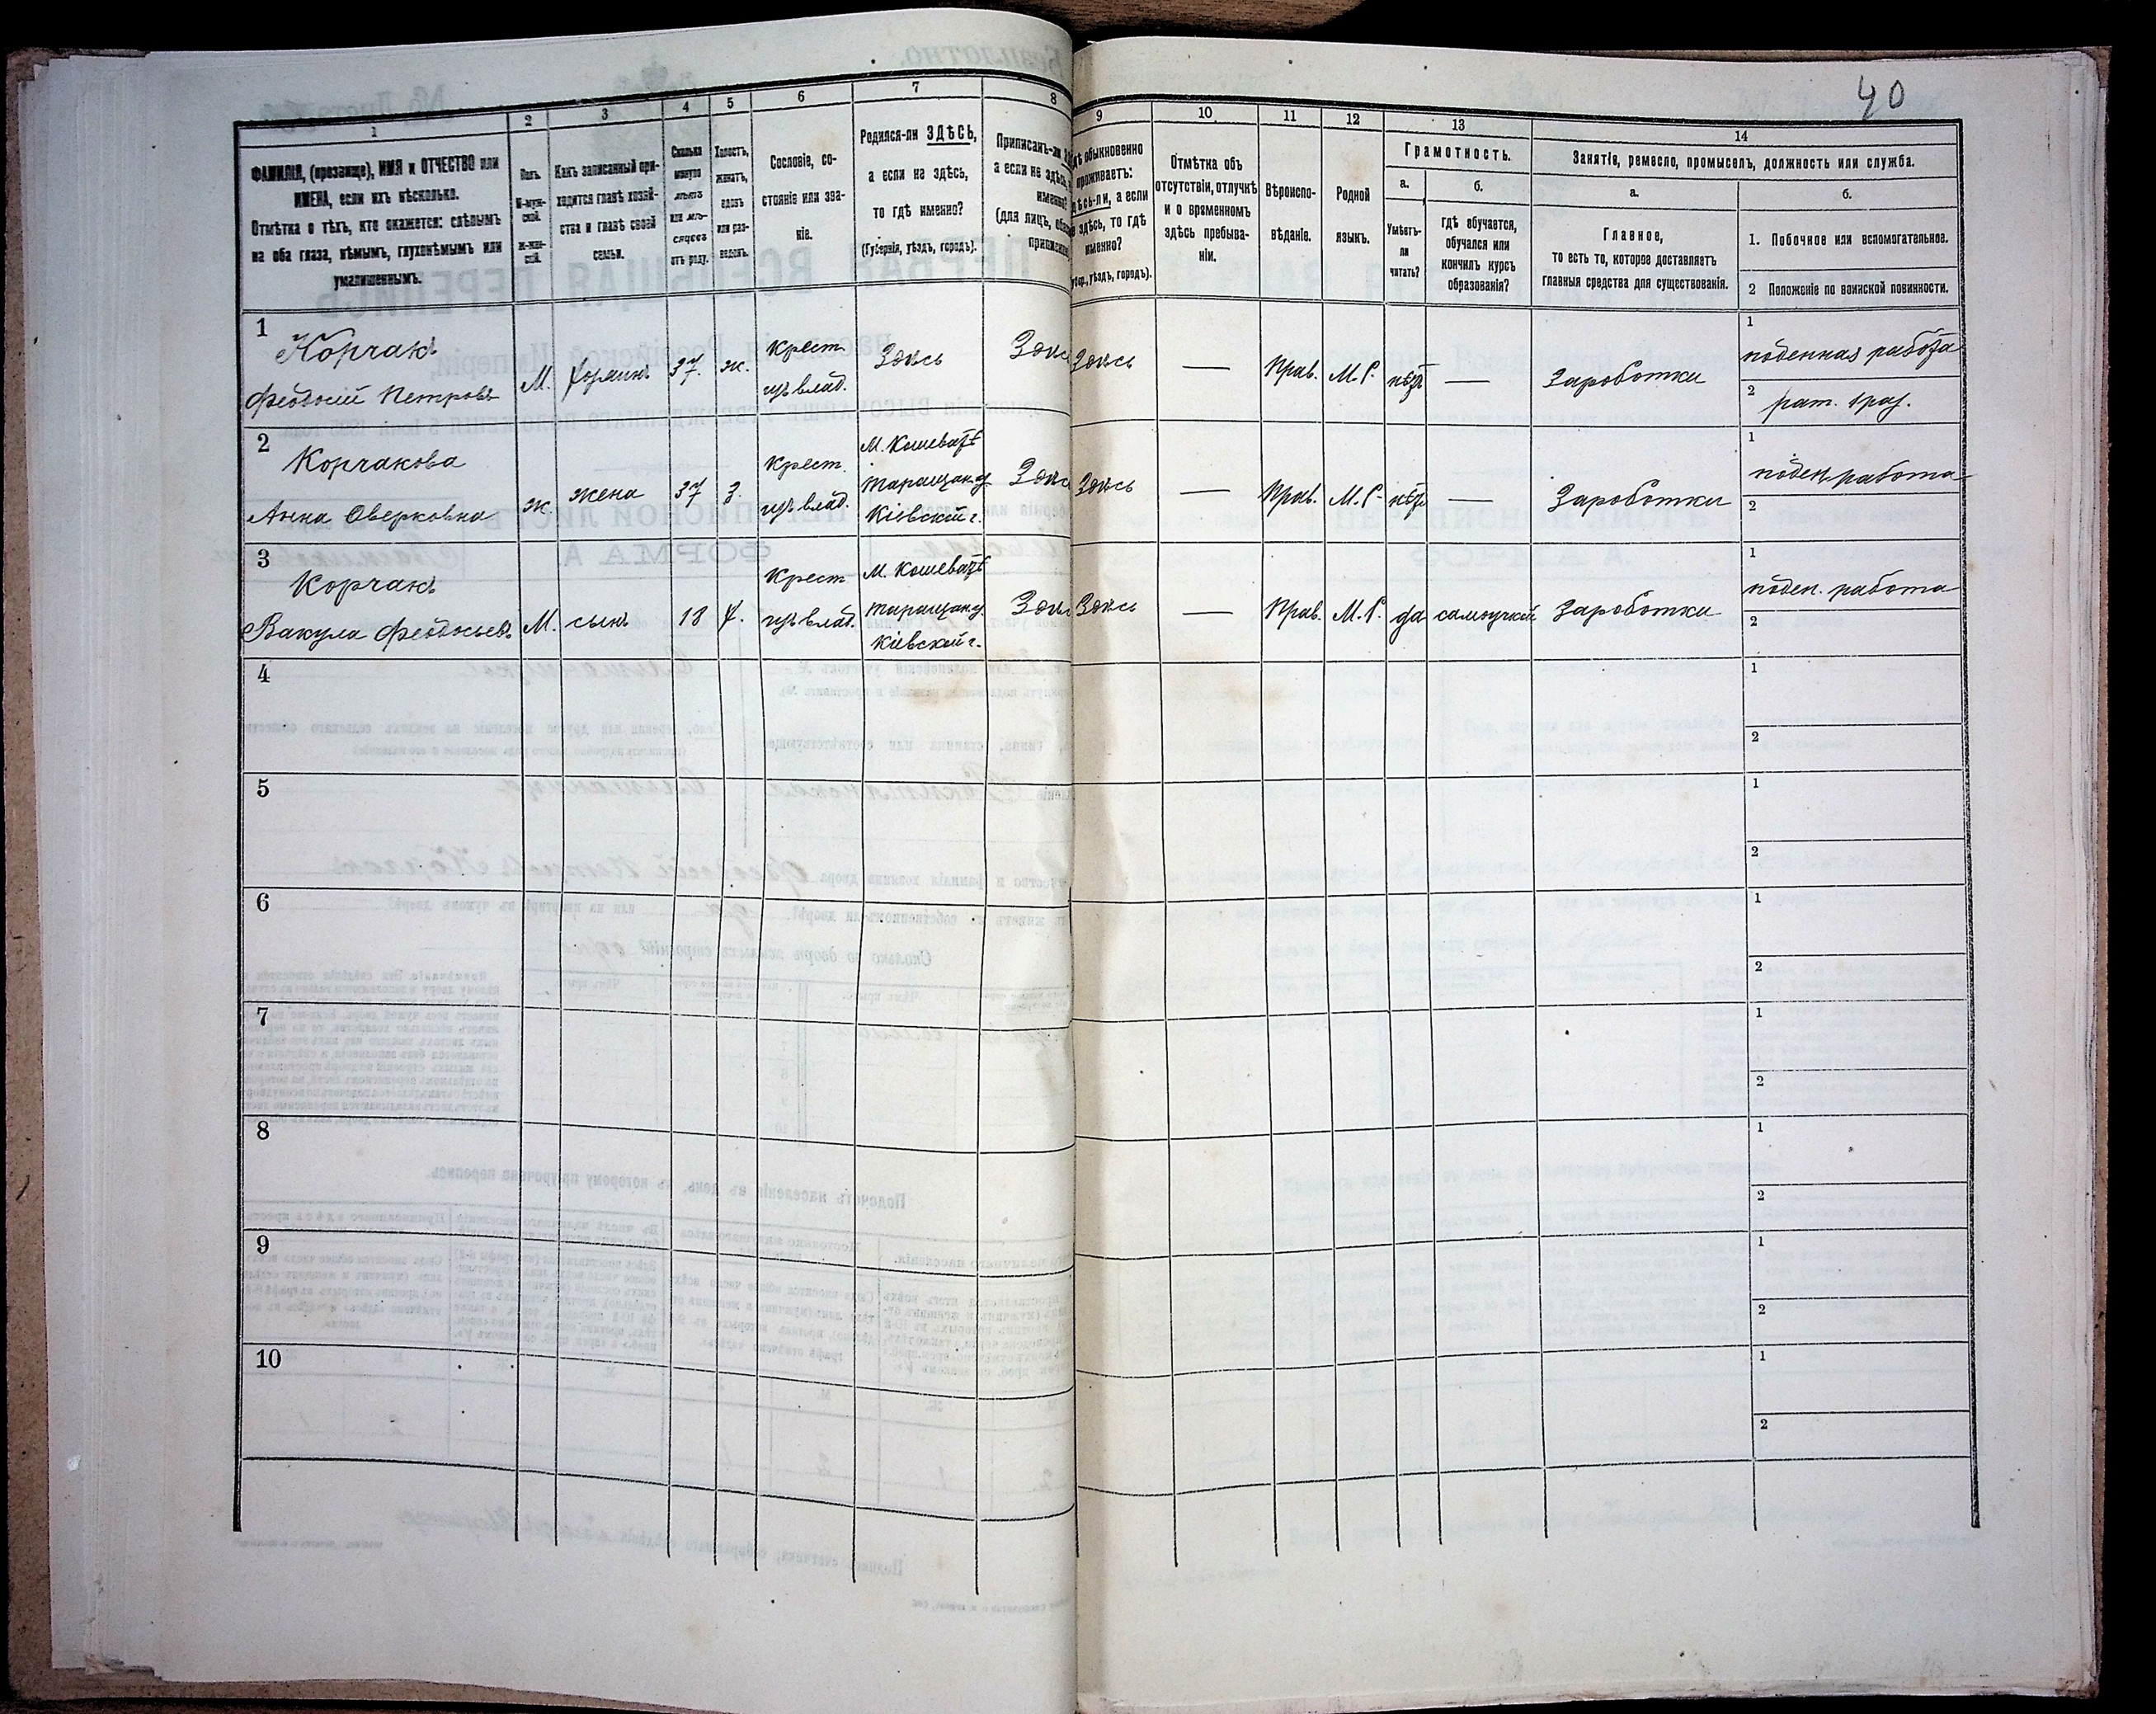 40
1
2
3
4
5
6
7
8
9
10
11
12
13
14
ФАМИЛІЯ, (прозвище), ИМЯ и ОТЧЕСТВО или
ИМЕНА, если ихъ нѣсколько.
Отмѣтка о тѣхъ, кто окажется: слѣпымъ
на оба глаза, нѣмымъ, глухонѣмымъ или
умалишеннымъ.
Полъ.
М-муж-
ской.
Ж-жен-
скій.
Какъ записанный при-
ходится главѣ хозяй-
ства и главѣ своей
семьи.
Сколько
минуло
лѣтъ
или мѣ-
сяцевъ
отъ роду.
Холостъ,
женатъ,
вдовъ
или раз-
веденъ.
Сословіе, со-
стояніе или зва-
ніе.
Родился-ли ЗДѢСЬ,
а если не здѣсь,
то гдѣ именно?
(Губернія, уѣздъ, городъ).
Приписанъ-ли
а если не здѣсь,
именно?
(для лицъ,
обыкновенно
проживаетъ:
а если
здѣсь, то гдѣ
именно?
уѣздъ, городъ).
Отмѣтка объ
отсутствіи, отлучкѣ
и о временномъ
здѣсь пребыва-
ніи.
Вѣроиспо-
вѣданіе.
Родной
языкъ.
Грамотность.
а.
Умѣетъ-
ли
читать?
б.
Гдѣ обучается,
обучался или
кончилъ курсъ
образованія?
Занятіе, ремесло, промыселъ, должность или служба.
а.
Главное,
то есть то, которое доставляетъ
главныя средства для существованія.
б.
1. Побочное или вспомогательное.
2 Положеніе по воинской повинности.
1
Корчакъ
Феодосій Петровъ
М.
хозяинъ
37.
ж.
Крест.
изъ влад.
Здѣсь
Здѣсь
—
Прав.
М.Р.
нѣтъ
—
Зароботки
1
поденная работа
2
рат. 1 раз.
2
Корчакова
Анна Оверковна
ж.
жена
37
з.
Крест.
изъ влад.
М. Кошеватѣ
Таращан. у.
Кіевской г.
Здѣсь
—
Прав.
М.Р.
нѣтъ
—
Зароботки
1
поден. работа
2
3
Корчакъ
Вакула Феодосьевъ
М.
сынъ
18
х.
Крест
изъ влад.
М. Кошеватѣ
Таращан. у.
Кіевской г.
Здѣсь
—
Прав.
М.Р.
да
самоучкой
Зароботки
1
поден. работа
2
4
1
2
5
1
2
6
1
2
7
1
2
8
1
2
9
1
2
10
1
2